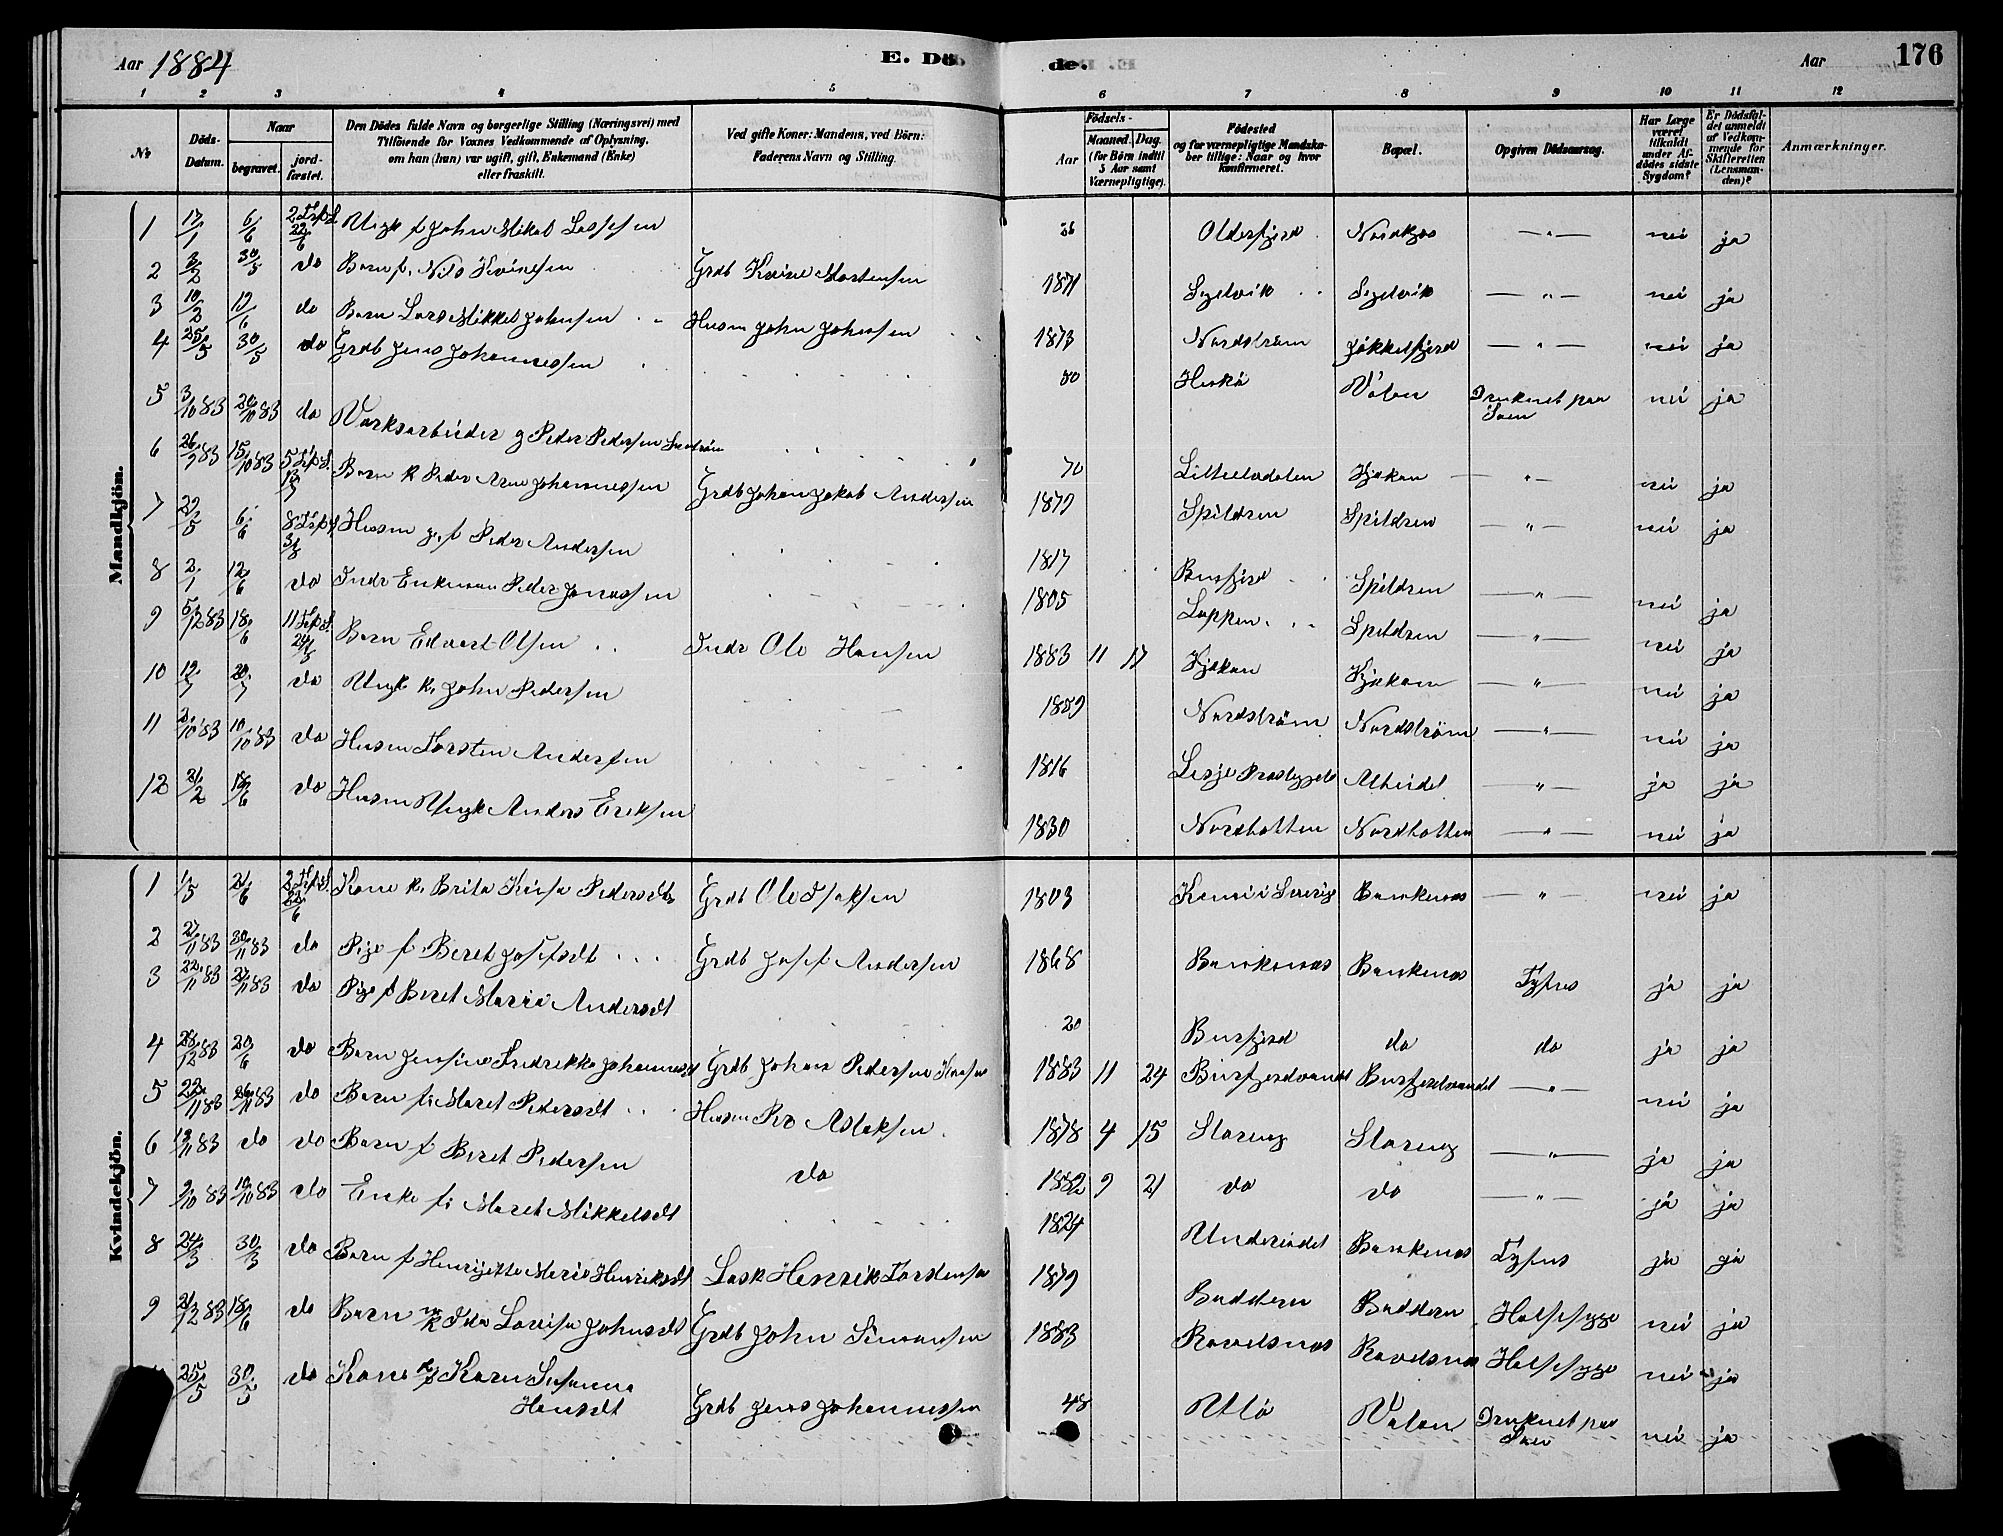 Aar 1884 E. Döde. Aar 176
1 2 3 4 5 6 7 8 9 10 11 12
No. Döds-Datum. Naar begravet. jordfæstet. Den Dödes fulde Navn og borgerlige Stilling (Næringsvei) med Tilföiende for Voxnes Vedkommende af Oplysning, om han (hun) var ugift, gift, Enkemand (Enke) eller fraskilt. Ved gifte Koner: Mandens, ved Börn: Faderens Navn og Stilling. Födsels- Aar Maaned. Dag. (for Börn indtil 5 Aar samt Værnepligtige). Födested og for værnepligtige Mandskaber tillige: Naar og hvor konfirmeret. Bopæl. Opgiven Dödsaarsag. Har Læge været tilkaldt under Afdödes sidste Sygdom? Er Dödsfaldet anmeldt af Vedkommende for Skifteretten (Lensmanden)? Anmærkninger.
Mandkjön.
1 17/1 6/6 22/6 Ungk f John Mikal Lassesen Olderfjord nei ja
2 3/2 30/5 do Barn f. Nils Kvinesen Grdb Kvine Mortensen 1871 Segelvik Segelvik " nei ja
3 10/2 12/6 do Barn Lars Mikkel Johnsen Husm John Johnsen 1873 Nordström Jökkelfjord " nei ja
4 25/5 30/5 do Grdb Jens Johannessen 80 Valan Druknet paa Söen nei ja
5 3/10 83 20/10 83 do Værksarbeider g Peder Pedersen 70 Kjækan " nei ja
6 26/9 83 15/10 83 Barn k Peder Arne Johannessen Grdb Johan Jakob Andersen 1879 Spildren Spildren " nei ja
7 6/6 Husm g. f Peder Andersen 1817 Burfjord Spildren " nei ja
8 2/1 12/6 do Inds Enkeman Peder Jonassen 1805 Loppen Spildren " nei ja
9 5/12 83 18/6 Barn Edvart Olsen Inds Ole Hansen 1883 11 17 Kjækan Kjækan " nei ja
10 20/7 do Ungk k. John Pedersen 1859 Nordström Nordström " nei ja
11 10/10 83 do Husm Torsten Andersen 1816 Alteidet " ja ja
12 21/2 18/6 do Husm Ungk Anders Eriksen 1830 Nordbotten Nordbotten " nei ja
Kvindekjön.
1 1/5 21/6 22/6 Kone k. Brita Kaisa Pedersdt Grdb Ole Isaksen 1803 Bankenæs " nei ja
2 30/11 83 do Pige f Beret Josefsdt Grdb Josef Andersen 1868 Bankenæs Bankenæs Tyfus ja ja
3 22/11 83 do Pige f Beret Maria Andersdt 20 Burfjord do do ja ja
4 28/12 83 20/6 do Barn Jensine Fredrikke Johannesdt Grdb Johan Pedersen 1883 11 24 Burfjordvandet Burfjordvandet " nei ja
5 26/11 83 do Barn f. Maret Pedersdt Husm Per Aslaksen 1878 4 15 Storeng Storeng " ja ja
6 19/11 83 do do Barn f Beret Pedersen do 1882 9 21 do do " ja ja
7 9/10 83 19/10 83 do Enke f. Maret Mikkelsdt 1824 Undereidet Bankenæs Tyfus ja ja
8 24/3 30/3 do Barn f Henrijette Marie Henriksdt Henrik Torstensen 1879 Baddern Baddern Halssyge nei ja
9 21/12 83 18/6 do Barn Ida Lovisa Johnsdt Grdb John Simonsen 1883 Ravelsnæs Ravelsnæs Halssyge nei ja
25/5 30/5 do Kone Karn Susanna Hansdt Grdb Jens Johannessen 48 Utlö Valan Druknet paa Söen nei ja